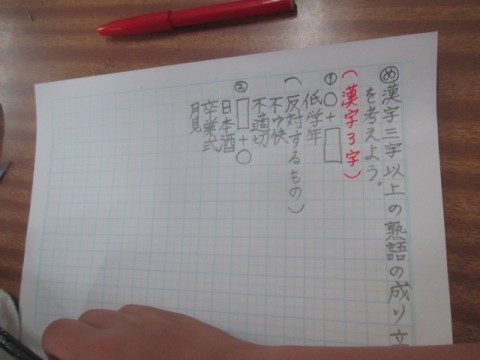 め漢字三字以上の熟語の成り立
を考えよう。
(漢字3字)
①○+□
低学年
(反対するもの)
不ゆ快
不適切
②□+○
日本酒
卒業式
月見